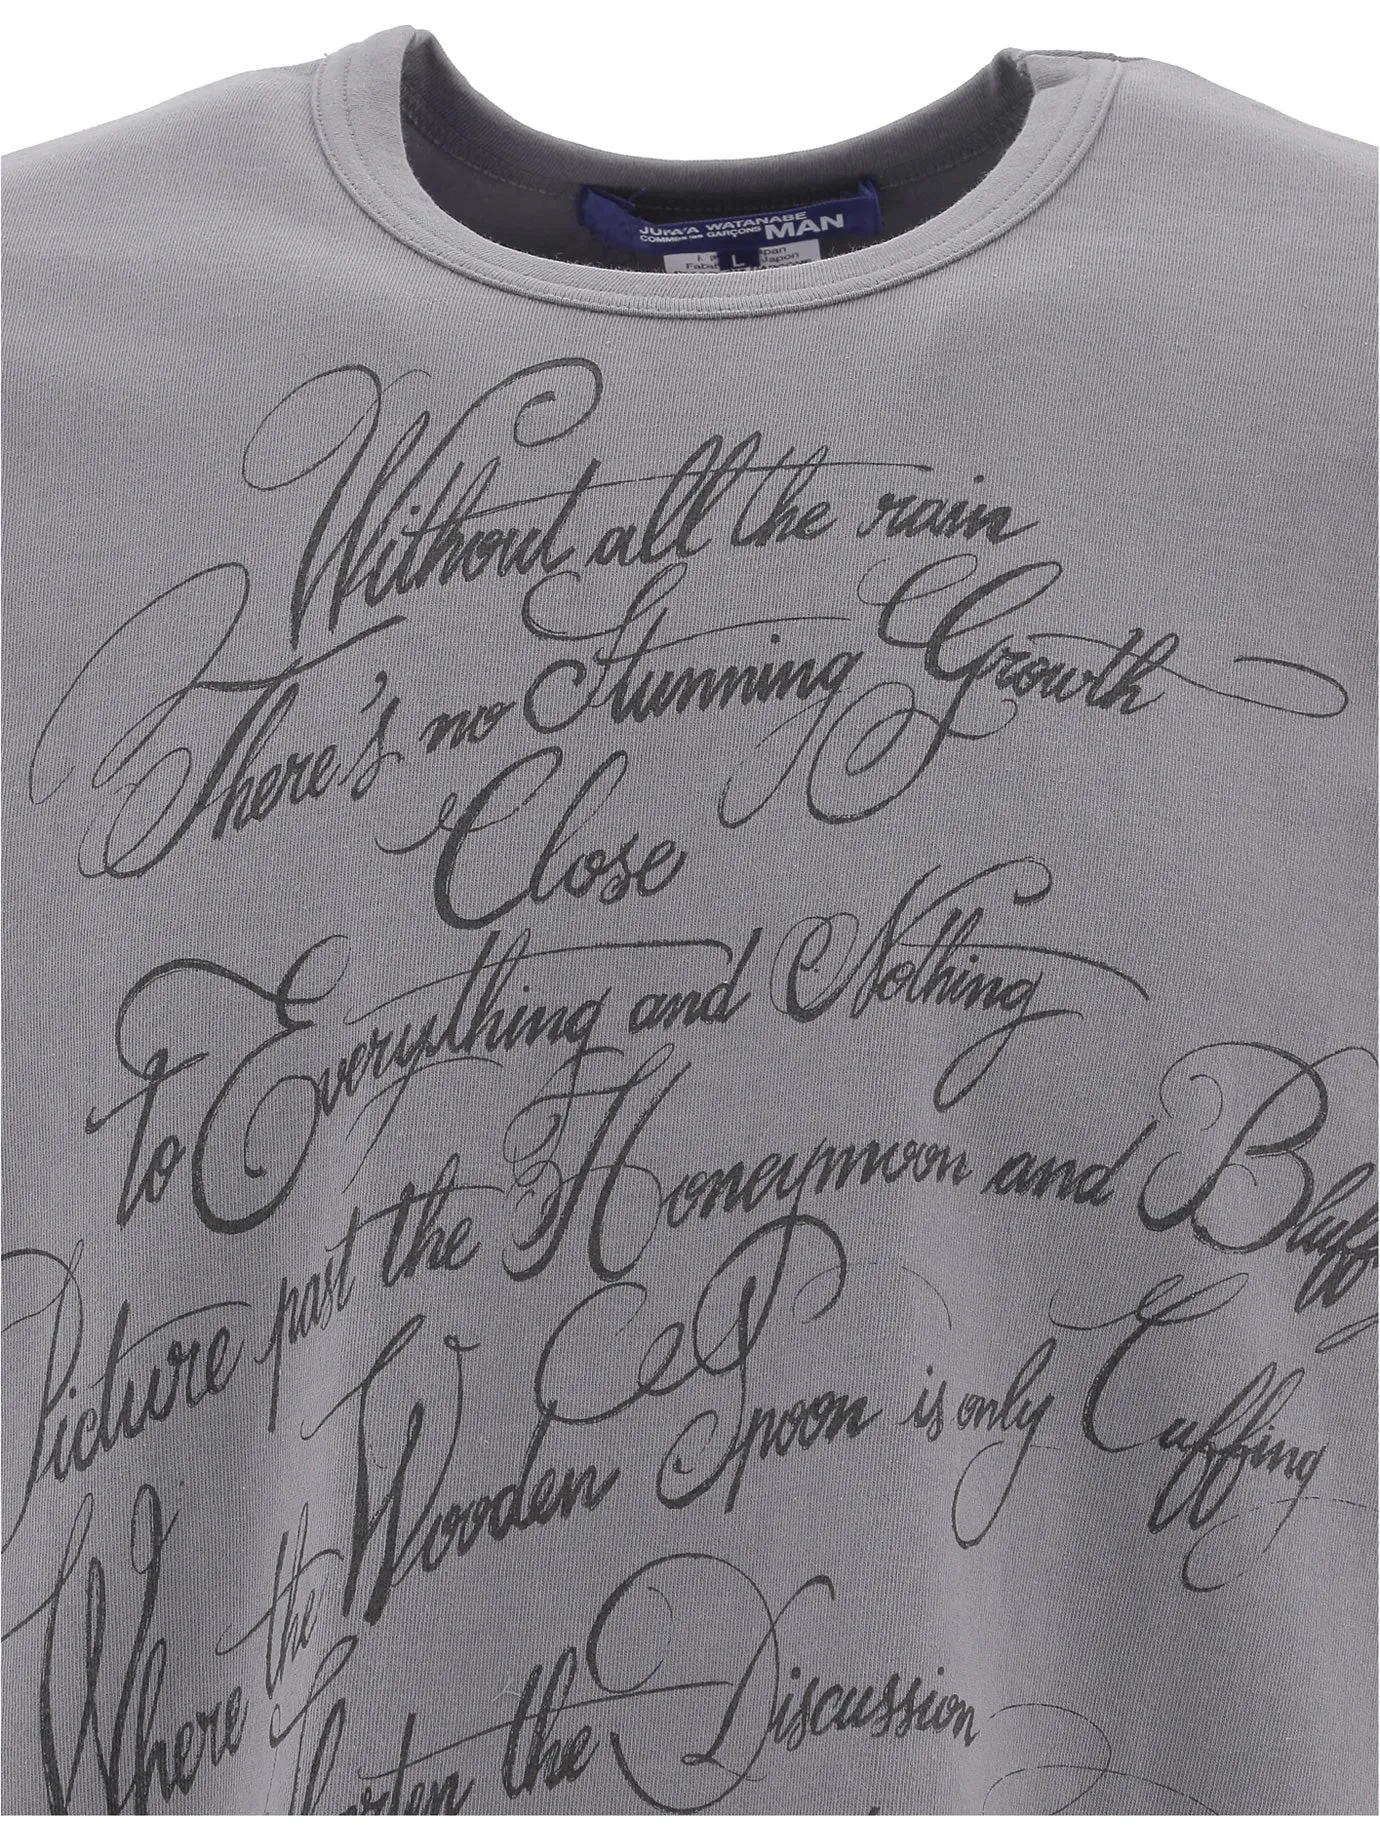 JUNYA WATANABE
COMME des GARÇONS MAN
L
Japon
Without all the rain
There's no Stunning Growth
Close
to Everything and Nothing
Picture past the Honeymoon and Bluff
Where the Wooden Spoon is only Cuffing
the Discussion